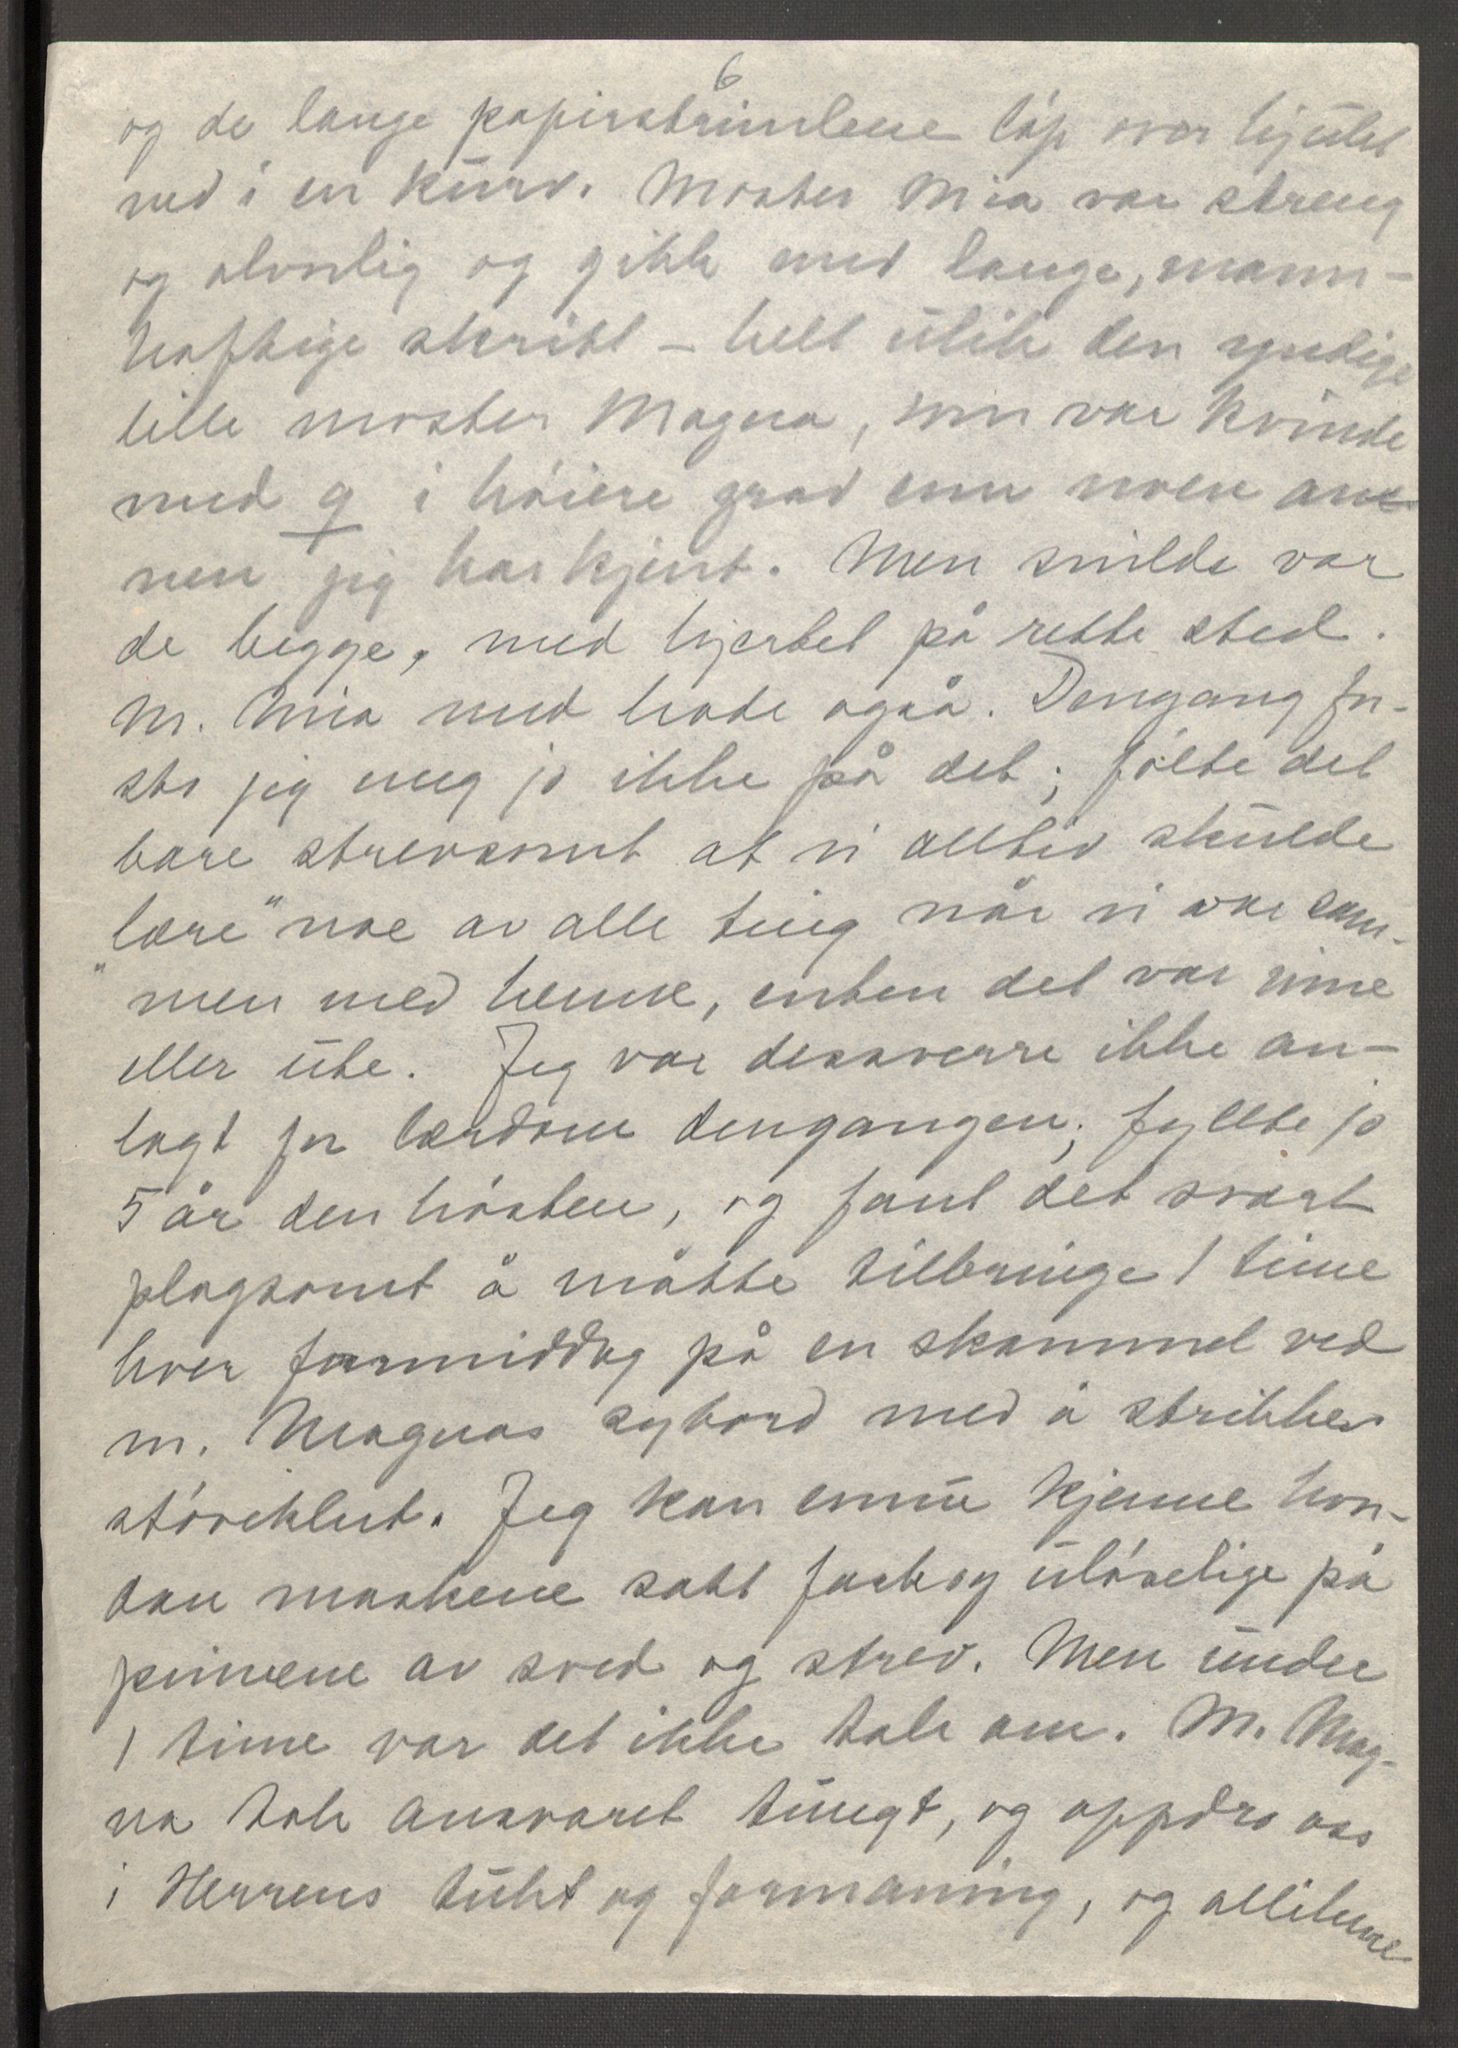 6
og de lange papirstrimlene löp over hjulet
ned i en kurv. Moster Mia var streng
og alvorlig og gikk med lange, mann-
haftige skritt – helt ulik den yndige
lille moster Magna, som var kvinde
med q i höiere grad enn noen an-
nen jeg har kjent. Men snilde var
de begge, med hjertet på rette sted.
M. Mia med hode også. Dengang for-
sto jeg meg jo ikke på det; fölte det
bare strevsomt at vi alltid skulde
"lære" noe av alle ting når vi var sam-
men med henne, enten det var inne
eller ute. Jeg var dessverre ikke an-
lagt for lærdom dengangen; fyllte jo
5 år den hösten, og fant det svært
plagsomt å måtte tilbringe 1 time
hver formiddag på en skammel ved
m. Magnas sybord med å strikke
störeklut. Jeg kan ennu kjenne hvor-
dan maskene satt fast og ulöselige på
pinnene av sved og strev. Men under
1 time var det ikke tale om. M. Mag-
na tok ansvaret tungt, og oppdro oss
i Herrens tukt og formaning, og allikevel